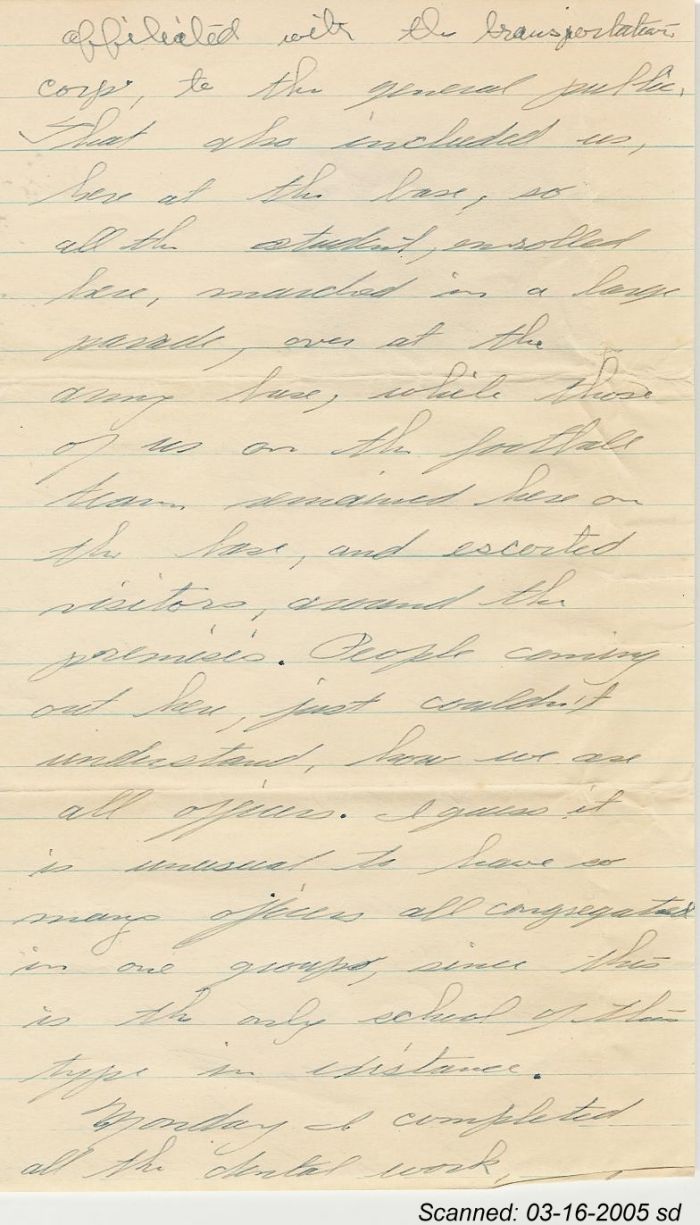 affiliated with the transportation
corp, to the general public.
That also included us,
here at the base, so
all the student, enrolled
here, marched in a large
parade, over at the
army base, while those
of us on the football
team remained here on
the base, and escorted
visitors, around the
premises. People coming
out here, just couldn't
understand, how we are
all officers. I guess it
is unusual to have so
many officers all congregated
in one group, since this
is the only school of this
type in existance.
Monday I completed
all the dental work,
Scanned: 03-16-2005 sd